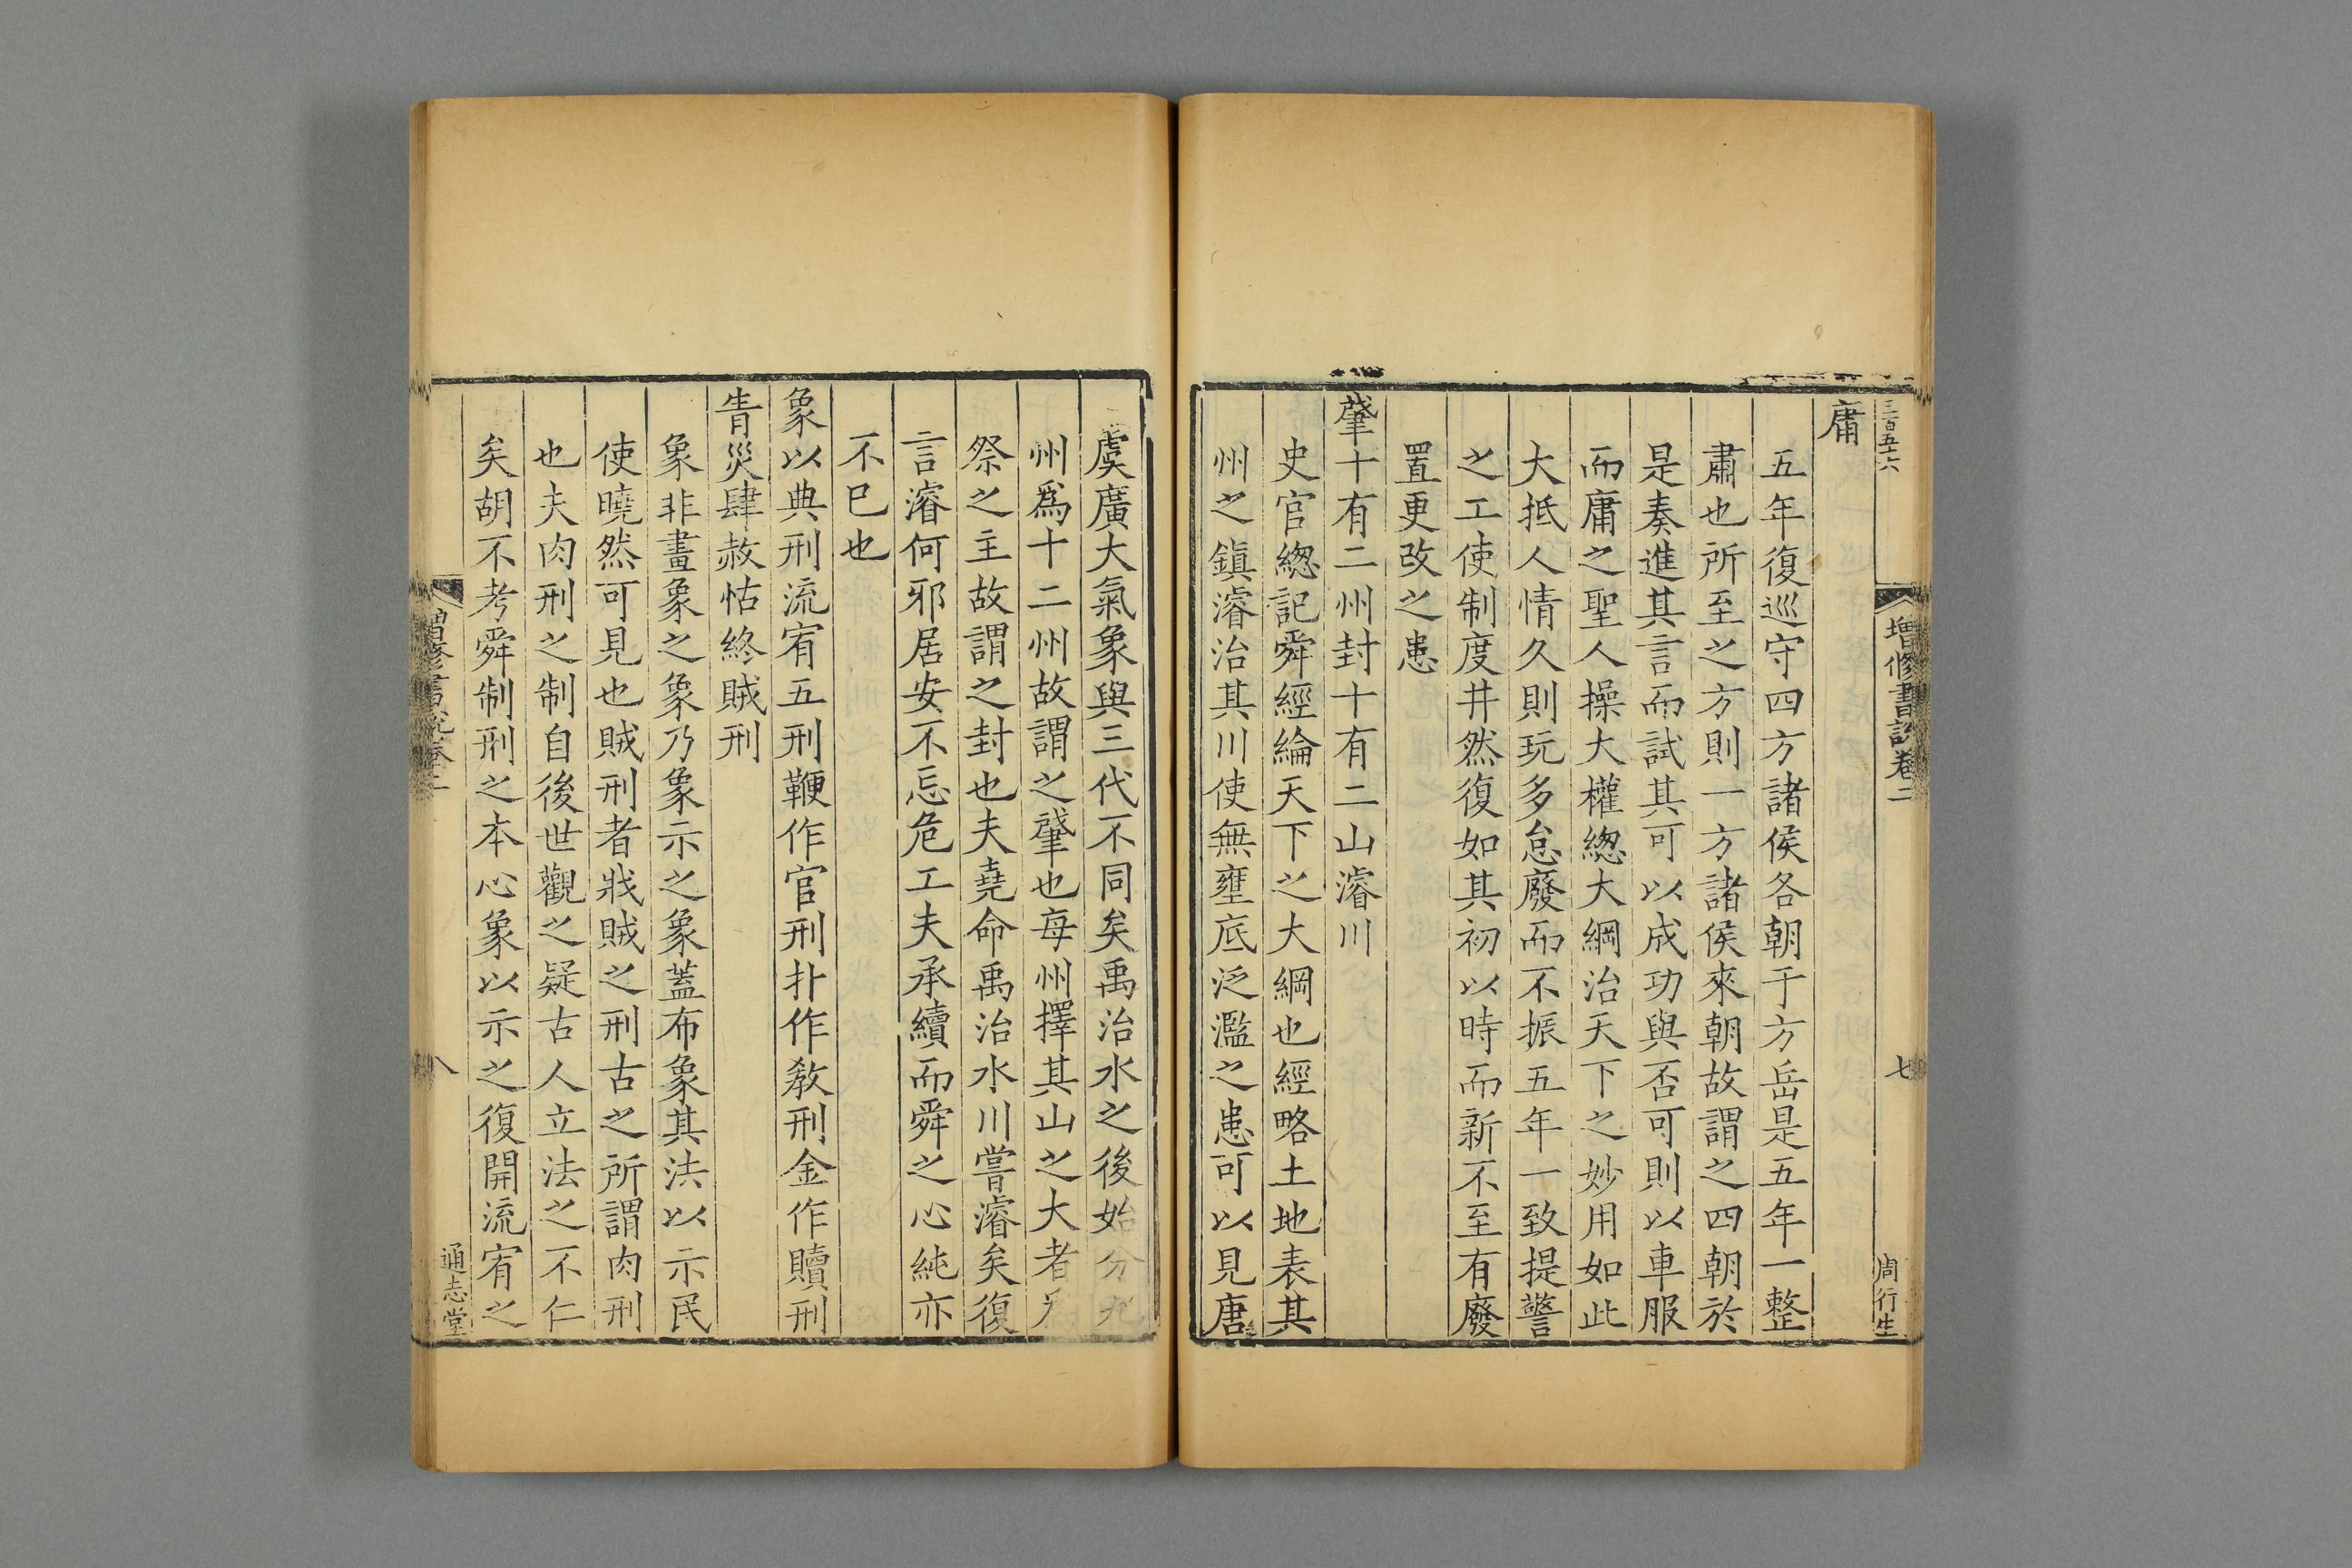 三百五十六
增修書說卷二
七
周行生
庸
五年復巡守四方諸侯各朝于方岳是五年一整
肅也所至之方則一方諸侯來朝故謂之四朝於
是奏進其言而試其可以成功與否可則以車服
而庸之聖人操大權緫大綱治天下之妙用如此
大抵人情久則玩多怠廢而不振五年一致提警
之工使制度井然復如其初以時而新不至有廢
置更改之患
肇十有二州封十有二山濬川
史官緫記舜經綸天下之大綱也經略土地表其
州之鎮濬治其川使無壅底泛濫之患可以見唐
虞廣大氣象與三代不同矣禹治水之後始分九
州爲十二州故謂之肇也每州擇其山之大者爲
祭之主故謂之封也夫堯命禹治水川嘗濬矣復
言濬何邪居安不忘危工夫承續而舜之心純亦
不已也
象以典刑流宥五刑鞭作官刑扑作敎刑金作贖刑
眚災肆赦怙終賊刑
象非畫象之象乃象示之象蓋布象其法以示民
使曉然可見也賊刑者戕賊之刑古之所謂肉刑
也夫肉刑之制自後世觀之疑古人立法之不仁
矣胡不考舜制刑之本心象以示之復開流宥之
增修書說卷二
八
通志堂